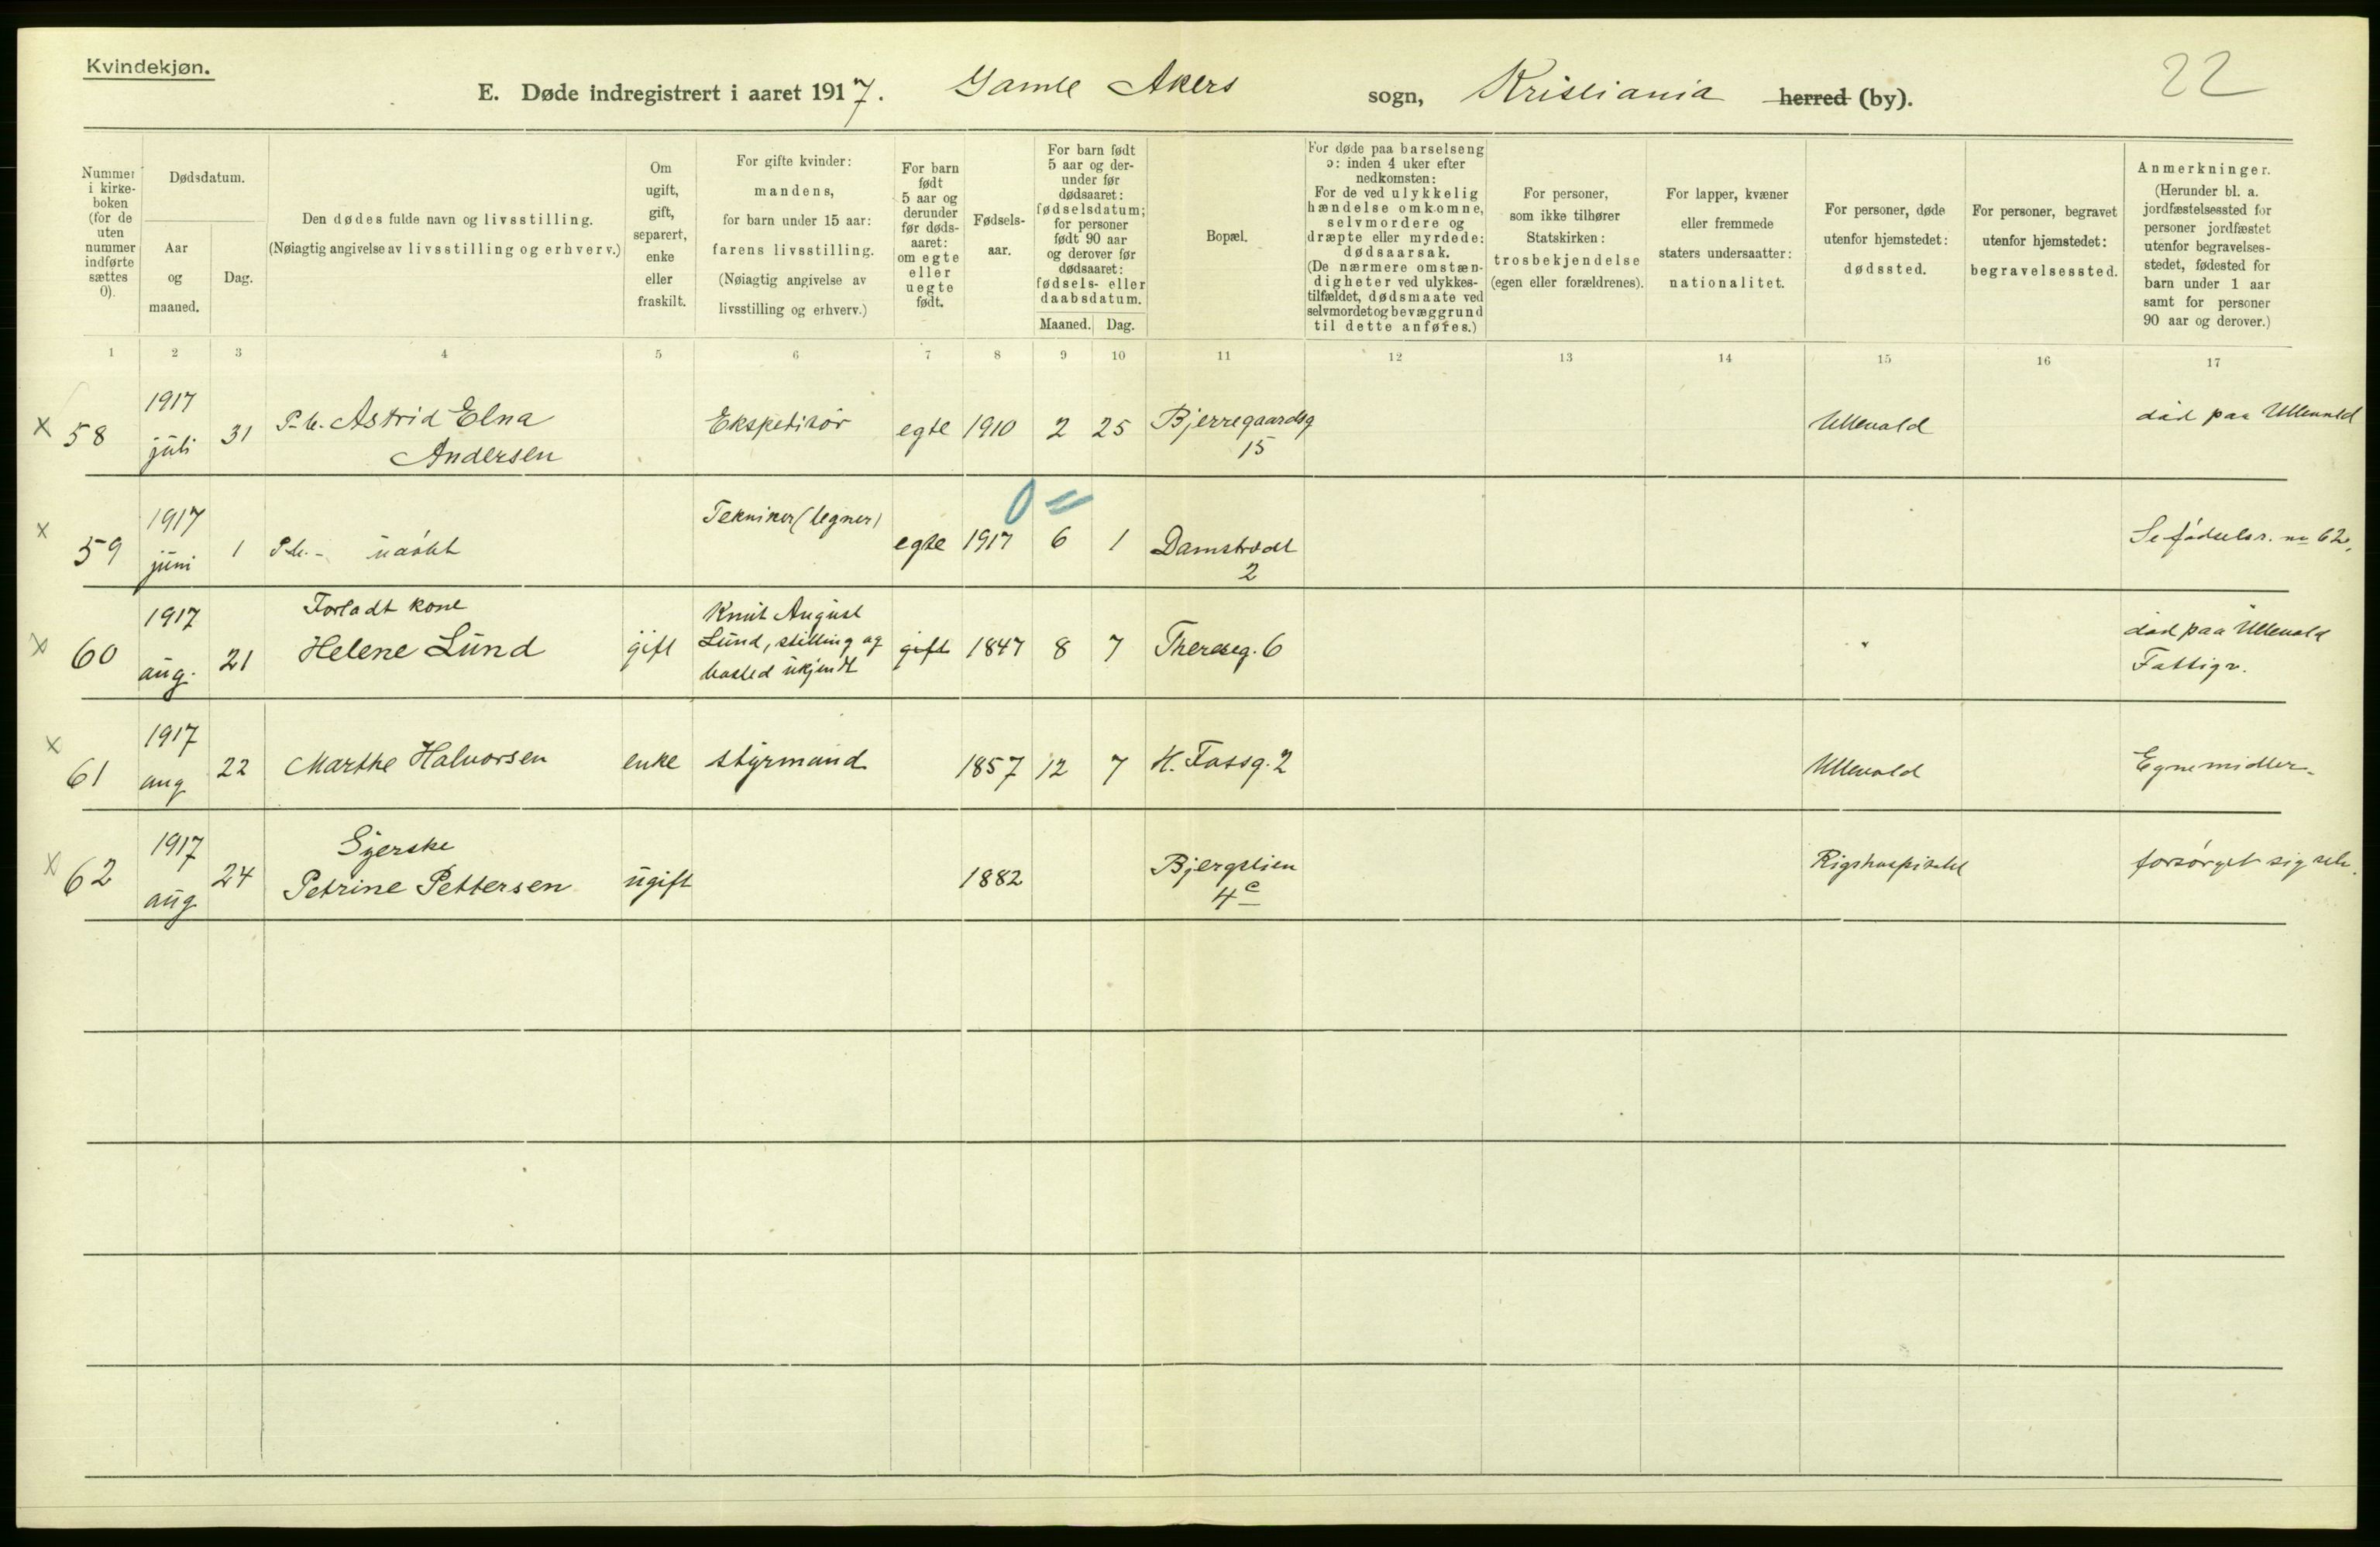 Kvindekjøn.
E. Døde indregistrert i aaret 1917. Gamle Akers sogn, Kristiania herred (by).
22
Nummer i kirkeboken (for de uten nummer indførte sættes 0).
Dødsdatum.
Aar og maaned.
Dag.
Den dødes fulde navn og livsstilling.
(Nøiagtig angivelse av livsstilling og erhverv.)
Om ugift, gift, separert, enke eller fraskilt.
For gifte kvinder: mandens, for barn under 15 aar: farens livsstilling.
(Nøiagtig angivelse av livsstilling og erhverv.)
For barn født 5 aar og derunder før dødsaaret: om egte eller uegte født.
Fødselsaar.
For barn født 5 aar og derunder før dødsaaret: fødselsdatum; for personer født 90 aar og derover før dødsaaret: fødsels- eller daabsdatum.
Maaned. Dag.
Bopæl.
For døde paa barselseng ɔ: inden 4 uker efter nedkomsten: For de ved ulykkelig hændelse omkomne, selvmordere og dræpte eller myrdede: dødsaarsak. (De nærmere omstændigheter ved ulykkestilfældet, dødsmaate ved selvmordet og bevæggrund til dette anføres.)
For personer, som ikke tilhører Statskirken: trosbekjendelse (egen eller forældrenes).
For lapper, kvæner eller fremmede staters undersaatter: nationalitet.
For personer, døde utenfor hjemstedet: dødssted.
For personer, begravet utenfor hjemstedet: begravelsessted.
Anmerkninger.
(Herunder bl. a. jordfæstelsessted for personer jordfæstet utenfor begravelsesstedet, fødested for barn under 1 aar samt for personer 90 aar og derover.)
1 2 3 4 5 6 7 8 9 10 11 12 13 14 15 16 17
x 58 1917 juli 31 P.b. Astrid Elna Andersen Ekspeditør egte 1910 2 25 Bjerregaardsg 15 Ullevold død paa Ullevold
x 59 1917 juni 1 P.b. - udøbt Tekniker (tegner) egte 1917 0 = 6 1 Damstrædt 2 Se fødselsr. no 62.
x 60 1917 aug. 21 Forladt kone Helene Lund gift Knut August Lund, stilling og bosted ukjendt gift 1847 8 7 Thereseg. 6 " død paa Ullevold Fattigv.
x 61 1917 aug 22 Marthe Halvorsen enke styrmand 1857 12 7 H. Fossg. 2 Ullevold Egne midler.
x 62 1917 aug 24 Syerske Petrine Pettersen ugift 1882 Bjergslien 4c Rigshospitalet forsørget sig selv.